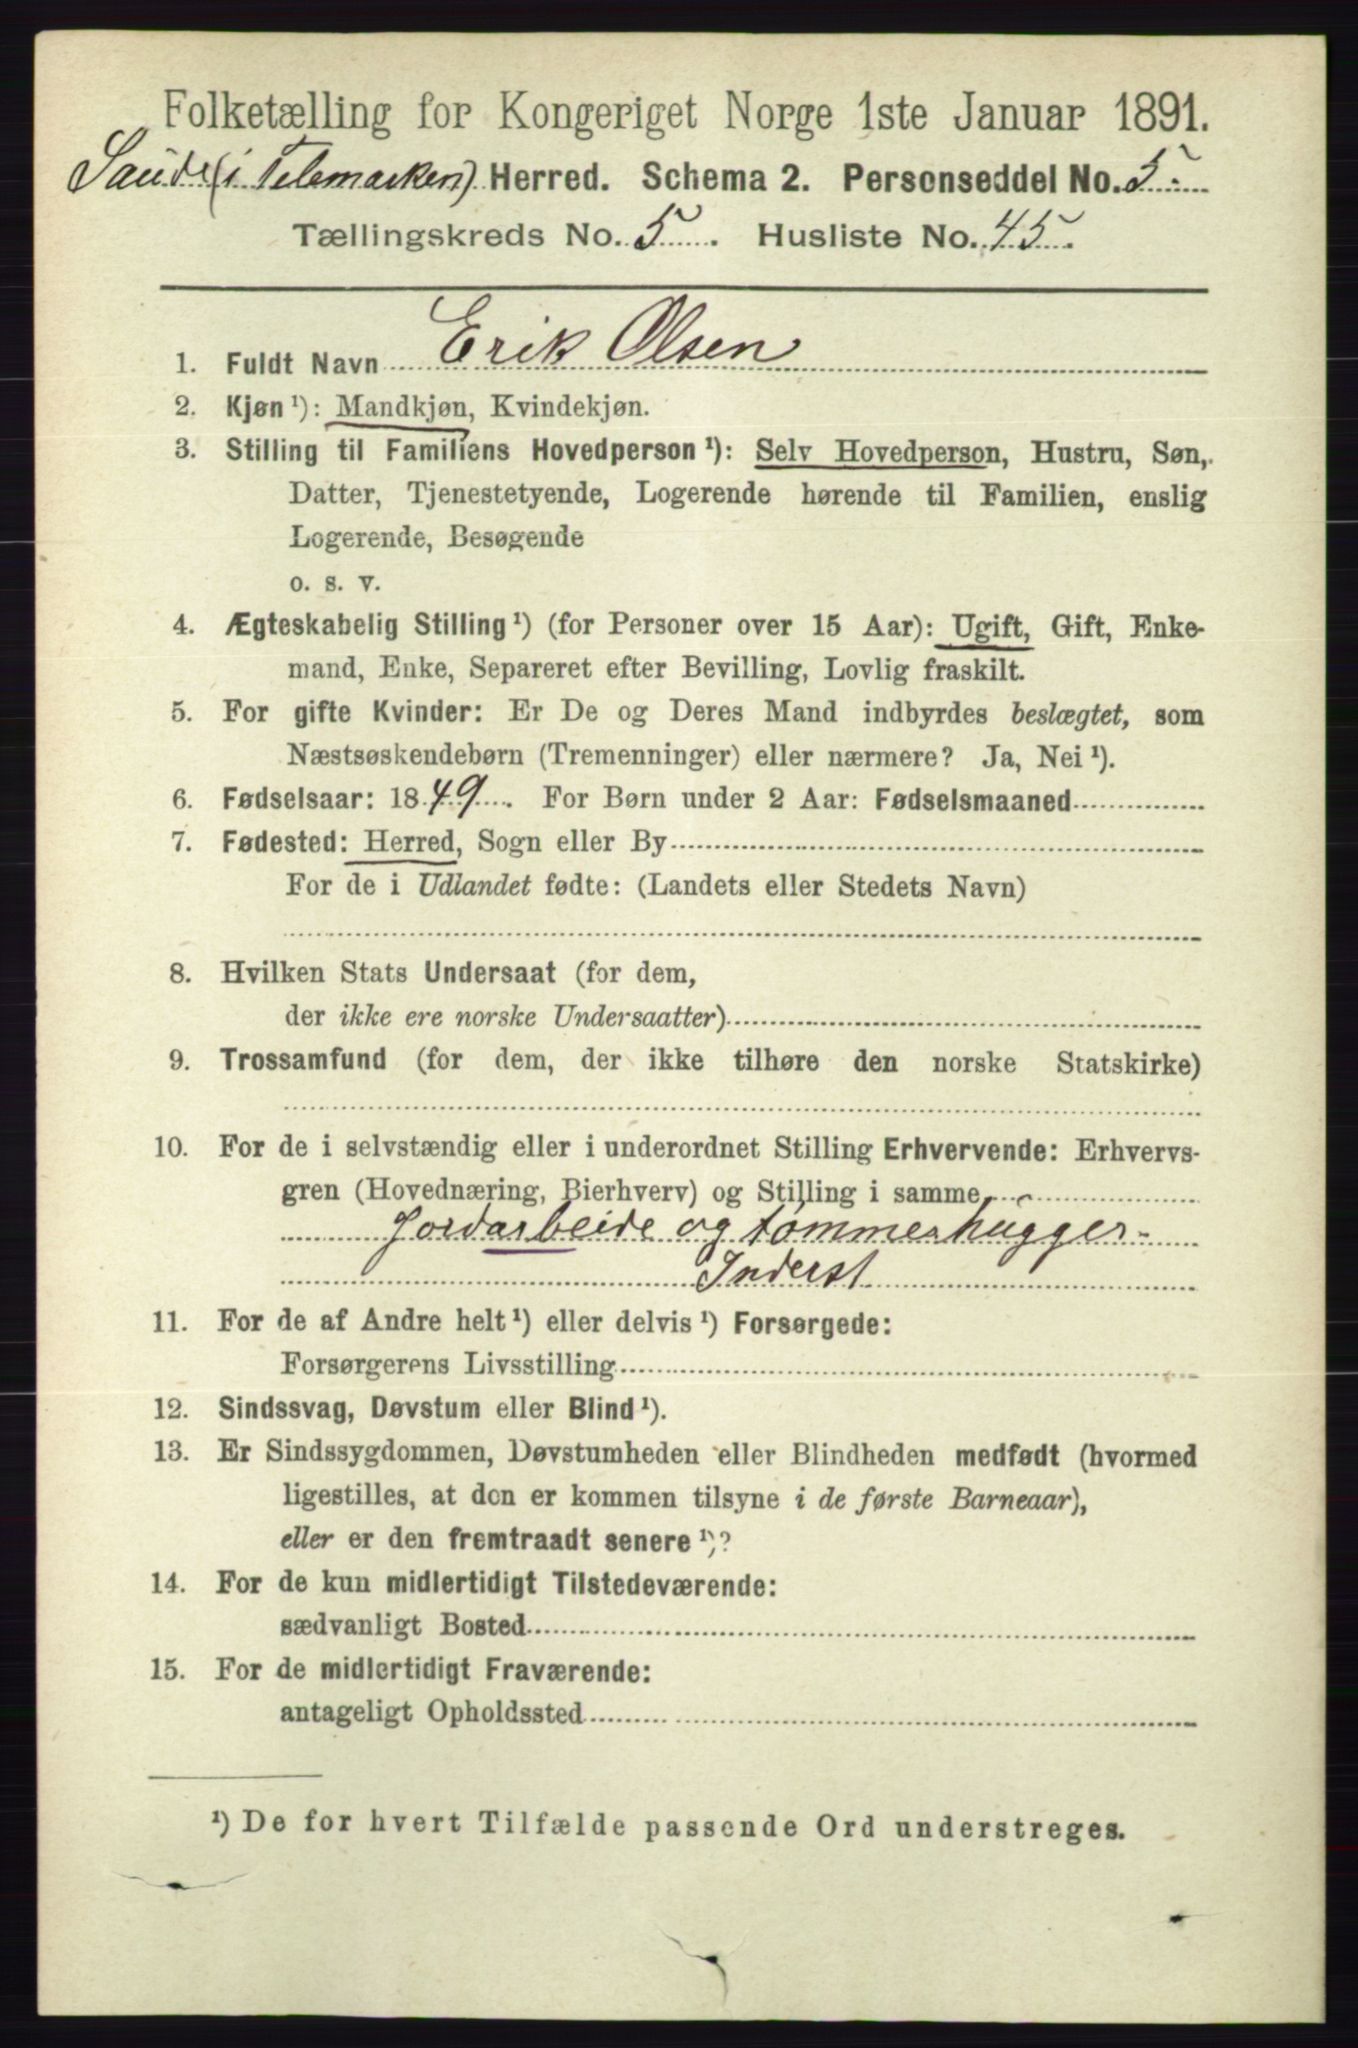 Folketælling for Kongeriget Norge 1ste Januar 1891.
Saude (i Telemarken) Herred. Schema 2. Personseddel No. 5.
Tællingskreds No. 5. Husliste No. 45.
1. Fuldt Navn Erik Olsen
2. Kjøn ¹): Mandkjøn, Kvindekjøn.
3. Stilling til Familiens Hovedperson ¹): Selv Hovedperson, Hustru, Søn,
Datter, Tjenestetyende, Logerende hørende til Familien, enslig
Logerende, Besøgende
o. s. v.
4. Ægteskabelig Stilling ¹) (for Personer over 15 Aar): Ugift, Gift, Enke-
mand, Enke, Separeret efter Bevilling, Lovlig fraskilt.
5. For gifte Kvinder: Er De og Deres Mand indbyrdes beslægtet, som
Næstsøskendebørn (Tremenninger) eller nærmere? Ja, Nei ¹).
6. Fødselsaar: 1849. For Børn under 2 Aar: Fødselsmaaned
7. Fødested: Herred, Sogn eller By
For de i Udlandet fødte: (Landets eller Stedets Navn)
8. Hvilken Stats Undersaat (for dem,
der ikke ere norske Undersaatter)
9. Trossamfund (for dem, der ikke tilhøre den norske Statskirke)
10. For de i selvstændig eller i underordnet Stilling Erhvervende: Erhvervs-
gren (Hovednæring, Bierhverv) og Stilling i samme
Jordarbeide og tømmerhugger-
Inderst
11. For de af Andre helt ¹) eller delvis ¹) Forsørgede:
Forsørgerens Livsstilling
12. Sindssvag, Døvstum eller Blind ¹).
13. Er Sindssygdommen, Døvstumheden eller Blindheden medfødt (hvormed
ligestilles, at den er kommen tilsyne i de første Barneaar),
eller er den fremtraadt senere ¹)?
14. For de kun midlertidigt Tilstedeværende:
sædvanligt Bosted
15. For de midlertidigt Fraværende:
antageligt Opholdssted
¹) De for hvert Tilfælde passende Ord understreges.